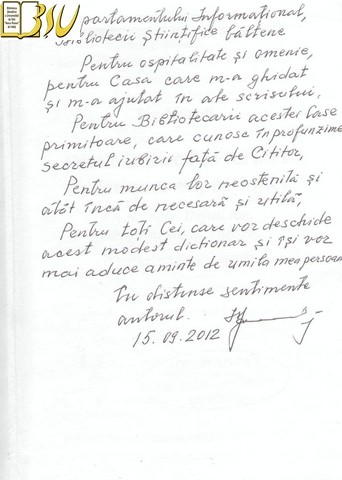 BSU
partamentului Informaţional,
Bibliotecii Ştiinţifice bălţene
Pentru ospitalitate şi omenie,
pentru Casa care m-a ghidat
şi m-a ajutat în ale scrisului.
Pentru Bibliotecarii acestei Case
primitoare, care cunosc în profunzime
secretul iubirii faţă de Cititor,
Pentru munca lor neostenită şi
atât încă de necesară şi utilă,
Pentru toţi Cei, care vor deschide
acest modest dicţionar şi îşi vor
mai aduce aminte de umila mea persoan
Cu distinse sentimente
autorul.
15.09.2012